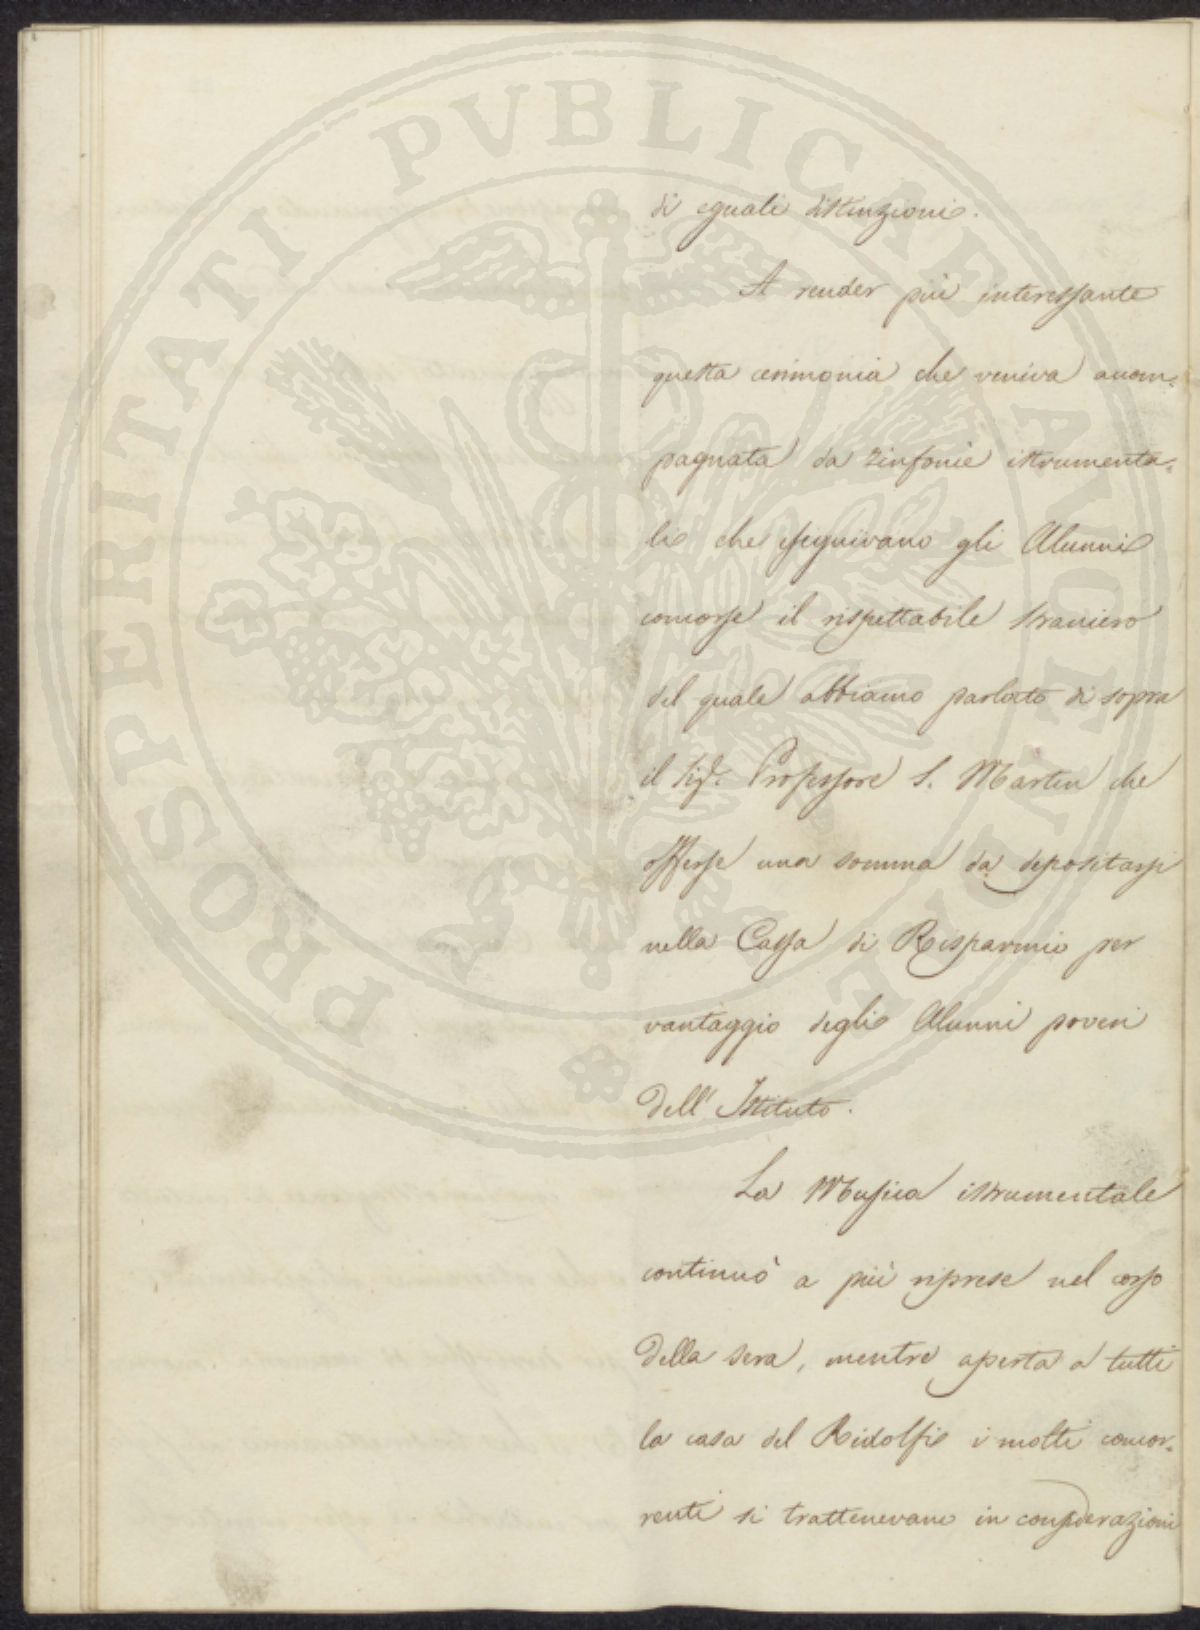 PROSPERITATI PVBLICAE AVGENDAE
di eguali distinzioni.
A render più interessante
questa cerimonia che veniva accom=
pagnata da zinfonie istrumenta=
li che eseguivano gli Alunni
concorse il rispettabile straniero
del quale abbiamo parlato di sopra
il Sigr. Professore S. Martin che
offerse una somma da depositarsi
nella Cassa di Risparmio per
vantaggio degli Alunni poveri
dell' Istituto.
La Musica istrumentale
continuò a più riprese nel corso
della sera, mentre aperta a tutti
la casa del Ridolfi i molti concor=
renti si trattenevano in considerazioni